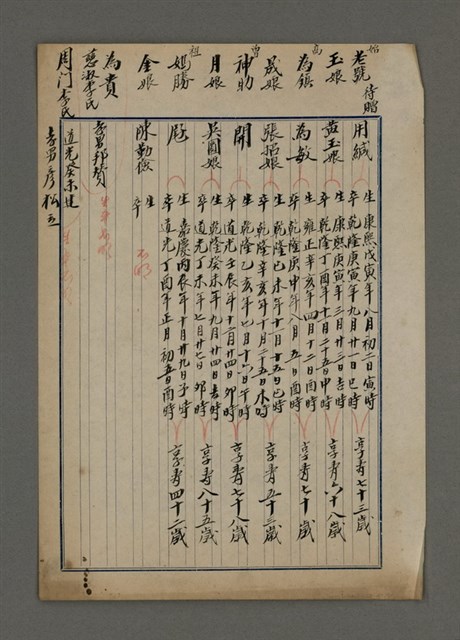 始
老號 待贈 用緘 生 康熙戊寅年八月初二日寅時 享壽七十三歲
卒 乾隆庚寅年九月廿一日巳時
玉娘 黃玉娘 生 康熙庚寅年三月廿三日吉時 享壽六十八歲
卒 乾隆丁酉年十月二十五日申時
高
為鎮 為敏 生 雍正辛亥年四月十二日酉時 享壽七十歲
卒 乾隆庚申年八月五日酉時
晟娘 張招娘 生 乾隆己未年十一月十五日巳時 享壽五十三歲
卒 乾隆辛亥年十月二十五日未時
曾
神助 開 生 乾隆乙亥年七月十六日午時 享壽七十八歲
卒 道光壬辰年十二月廿四日卯時
月娘 吳圓娘 生 乾隆癸未年九月廿四日吉時 享壽八十五歲
卒 道光丁未年七月廿七日卯時
祖
妲勝 生 嘉慶丙辰年十月廿九日子時 享壽四十二歲
卒 道光丁酉年正月初五日酉時
金娘 陳勤儉 生
卒
不明
為貴 孝男邦贊
慈淑李氏 道光癸未建
周門李氏 孝男彥松立